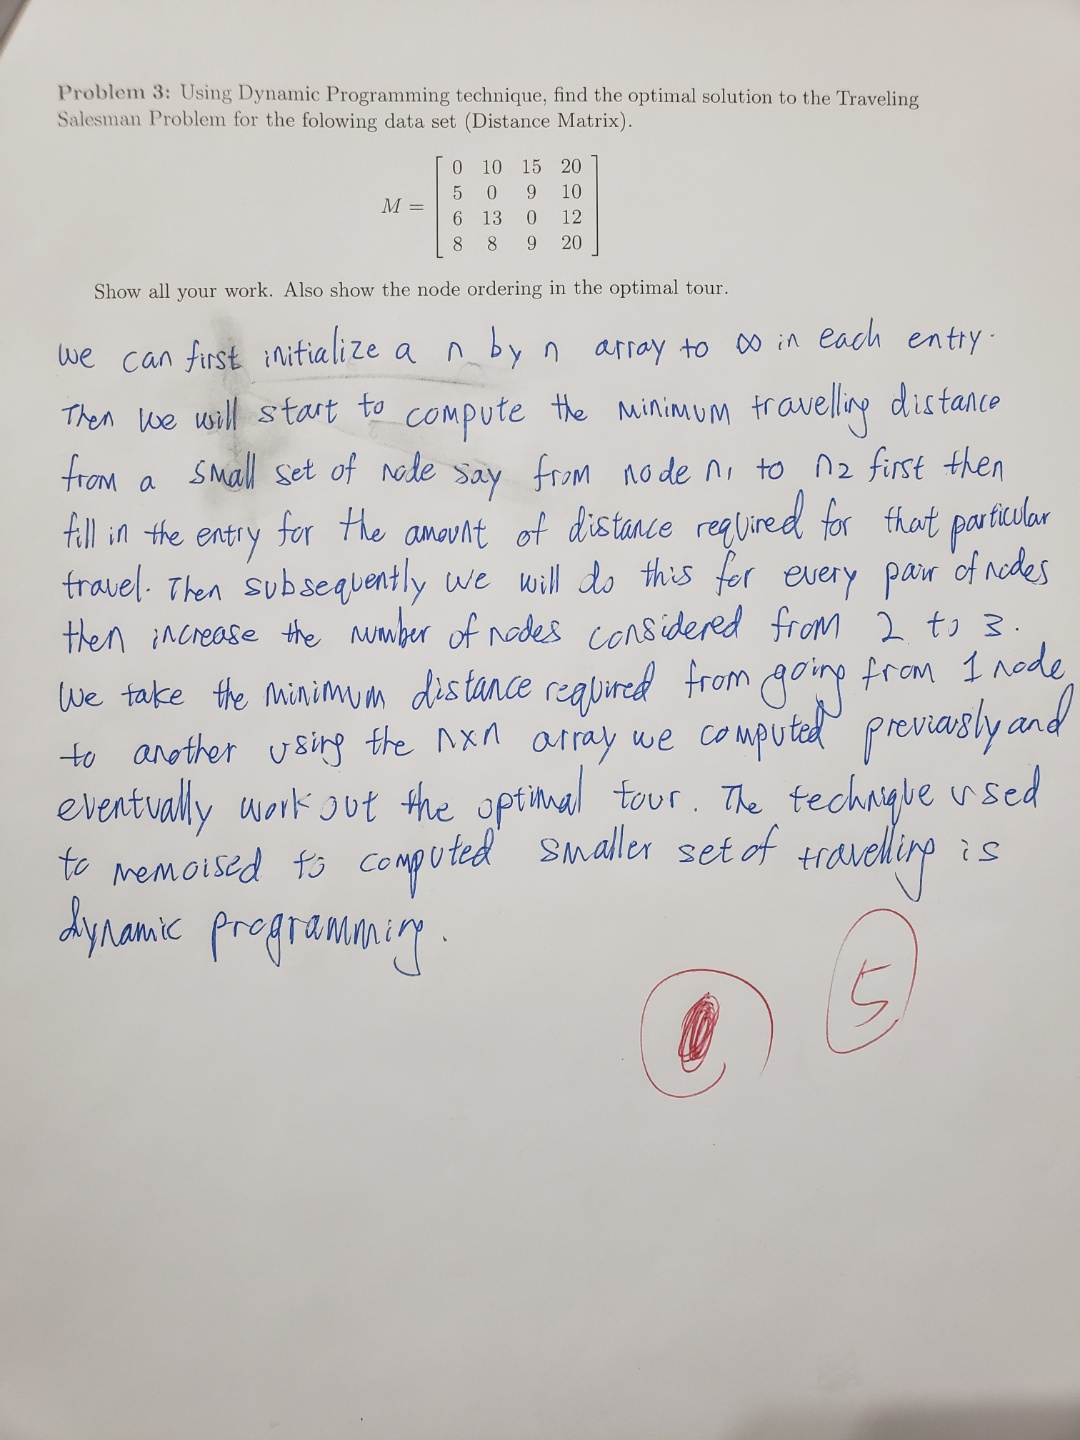 Problem 3: Using Dynamic Programming technique, find the optimal solution to the Traveling
Salesman Problem for the folowing data set (Distance Matrix).
M = [ 0 10 15 20
5 0 9 10
6 13 0 12
8 8 9 20 ]
Show all your work. Also show the node ordering in the optimal tour.
We can first initialize a n by n array to ∞ in each entry.
Then we will start to compute the minimum travelling distance
from a small set of node say from node n1 to n2 first then
fill in the entry for the amount of distance required for that particular
travel. Then subsequently we will do this for every pair of nodes
then increase the number of nodes considered from 2 to 3.
We take the minimum distance required from going from 1 node
to another using the n×n array we computed previously and
eventually work out the optimal tour. The technique used
to memoised to computed smaller set of travelling is
dynamic programming.
5